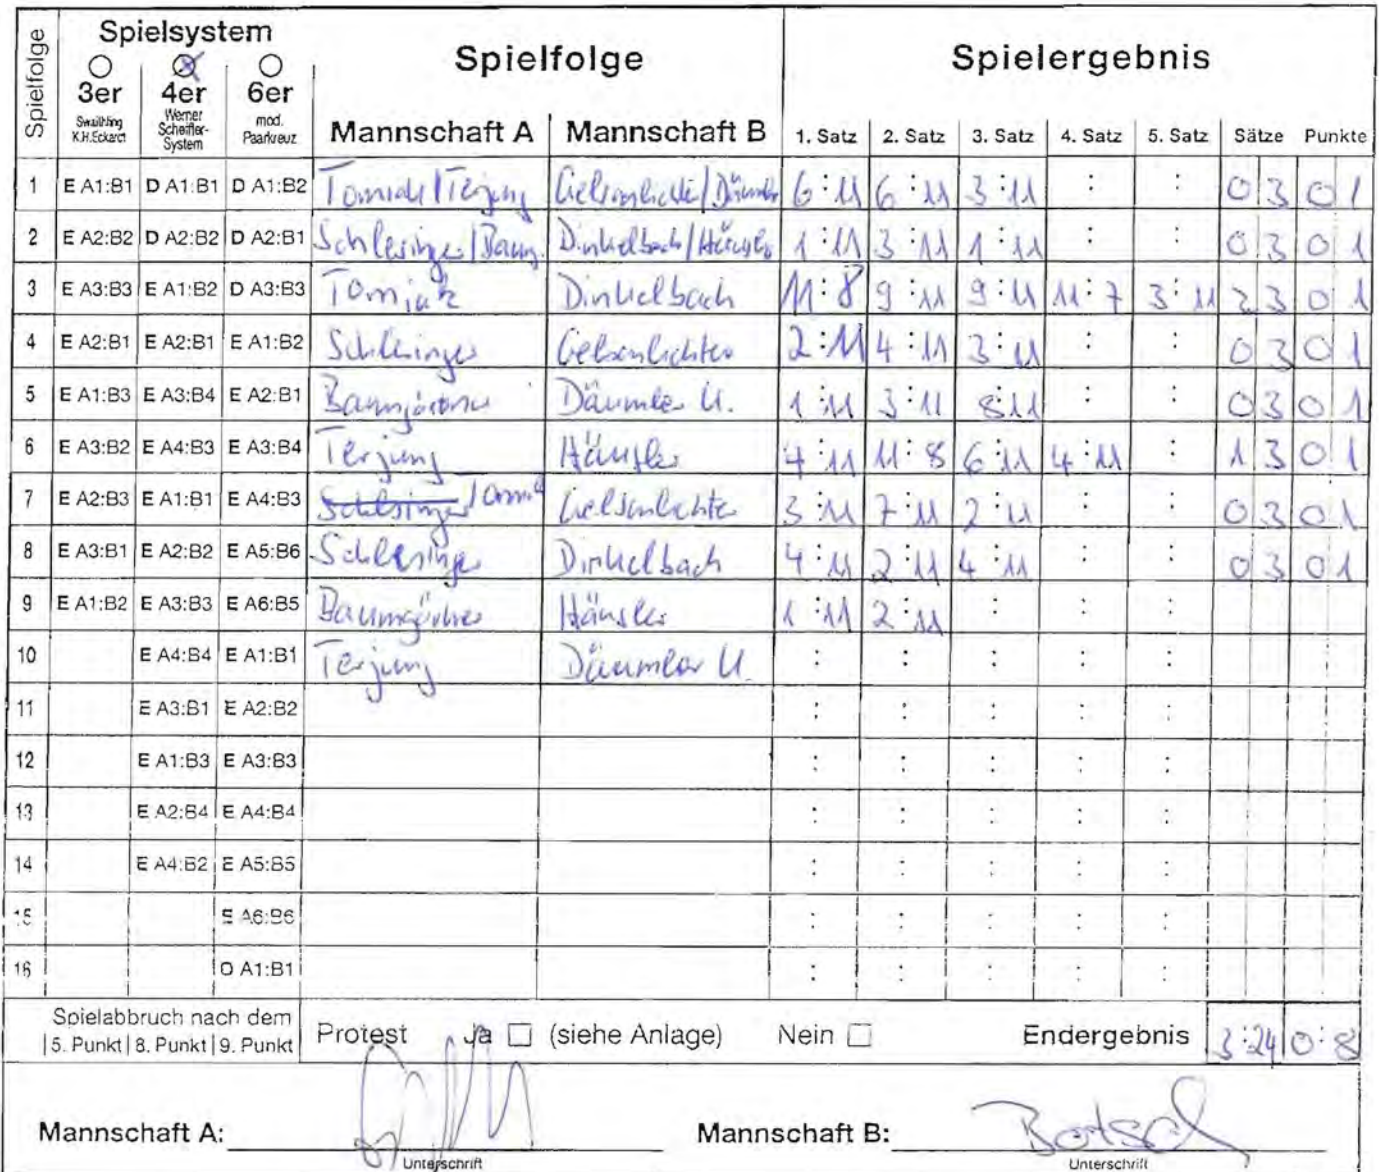 Spielfolge Spielsystem Spielfolge Spielergebnis
3er 4er 6er
Swaithling K.H.Eckardt Werner Scheffler-System mod. Paarkreuz Mannschaft A Mannschaft B 1. Satz 2. Satz 3. Satz 4. Satz 5. Satz Sätze Punkte
1 E A1:B1 D A1:B1 D A1:B2 Tomiak/Terjung Gelsenlichter/Däumler 6:11 6:11 3:11 : : 0 3 0 1
2 E A2:B2 D A2:B2 D A2:B1 Schlesinger/Baum. Dinkelbach/Häusler 1:11 3:11 1:11 : : 0 3 0 1
3 E A3:B3 E A1:B2 D A3:B3 Tomiak Dinkelbach 11:8 9:11 9:11 11:7 3:11 2 3 0 1
4 E A2:B1 E A2:B1 E A1:B2 Schlesinger Gelsenlichter 2:11 4:11 3:11 : : 0 3 0 1
5 E A1:B3 E A3:B4 E A2:B1 Baumgärtner Däumler U. 1:11 3:11 8:11 0 3 0 1
6 E A3:B2 E A4:B3 E A3:B4 Terjung Häusler 4:11 11:8 6:11 4:11 : 1 3 0 1
7 E A2:B3 E A1:B1 E A4:B3 Schlesinger Tomiak Gelsenlichter 3:11 7:11 2:11 : : 0 3 0 1
8 E A3:B1 E A2:B2 E A5:B6 Schlesinger Dinkelbach 4:11 2:11 4:11 : : 0 3 0 1
9 E A1:B2 E A3:B3 E A6:B5 Baumgärtner Häusler 1:11 2:11 : : :
10 E A4:B4 E A1:B1 Terjung Däumler U. : : : : :
11 E A3:B1 E A2:B2 : : : : :
12 E A1:B3 E A3:B3 : : : : :
13 E A2:B4 E A4:B4 : : : : :
14 E A4:B2 E A5:B5 : : : : :
15 E A6:B6 : : : : :
16 D A1:B1 : : : : :
Spielabbruch nach dem
5. Punkt 8. Punkt 9. Punkt Protest Ja (siehe Anlage) Nein Endergebnis 3:24 0:8
Mannschaft A: Mannschaft B: Botsch
Unterschrift Unterschrift